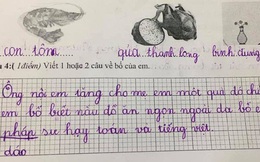 con tôm
quả thanh long
bình đựng
4: (1điểm) Viết 1 hoặc 2 câu về bố của em.
Ông nói em tặng cho mẹ em một quả
em bố biết nấu đồ ăn ngon ngoài da bố
pháp sư hay toán và tiếng việt.
dáo